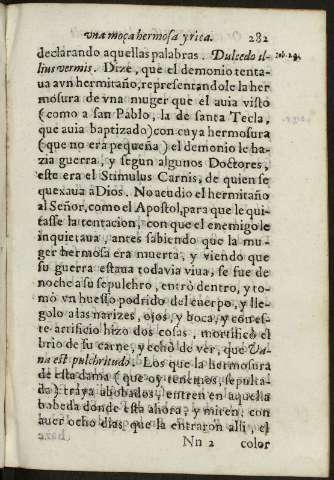 vna moça hermosa y rica. 282
declarando aquellas palabras. Dulcedo il- Iob. 24.
lius vermis. Dize, que el demonio tenta-
ua a vn hermitaño, representandole la her
mosura de vna muger que el auia visto
(como a san Pablo, la de santa Tecla,
que auia baptizado) con cuya hermosura
(que no era pequeña) el demonio le ha-
zia guerra, y segun algunos Doctores,
este era el Stimulus Carnis, de quien se
quexaua à Dios. No acudio el hermitaño
al Señor, como el Apostol, para que le qui-
tasse la tentacion, con que el enemigo le
inquietaua, antes sabiendo que la mu-
ger hermosa era muerta, y viendo que
su guerra estaua todavia viua, se fue de
noche a su sepulchro, entrò dentro, y to-
mò vn huesso podrido del cuerpo, y lle-
golo a las narizes, ojos, y boca, y con es-
te artificio hizo dos cosas, mortificò el
brio de su carne, y echò de ver, que Va-
na est pulchritudo. Los que la hermosura
de esta dama (que oy tenemos, sepulta-
da) traya abobados, entren en aquella
bobeda donde esta ahora, y miren, con
auer ocho dias que la entraron alli, el
Nn 2 color